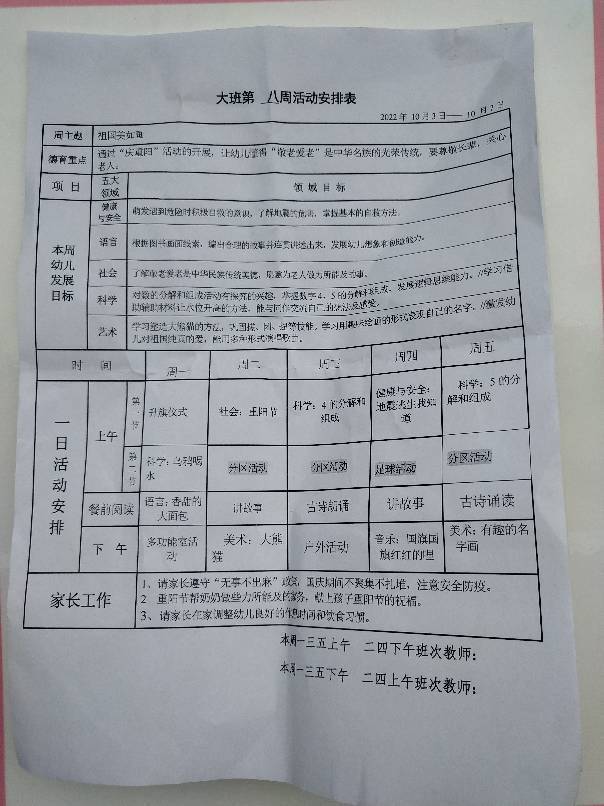 大班第 八周活动安排表
2022年 10月3日——10月7日
周主题 祖国美如画
德育重点 通过“庆重阳”活动的开展，让幼儿懂得“敬老爱老”是中华名族的光荣传统，要尊敬长辈，关心
老人。
项 目 五大
领域 领 域 目 标
本周
幼儿
发展
目标
健康
与安全 萌发遇到危险时积极自救的意识，了解地震的危害，掌握基本的自救方法。
语言 根据图书画面线索，编出合理的故事并连贯讲述出来，发展幼儿想象和创造能力。
社会 了解敬老爱老是中华民族传统美德，愿意为老人做力所能及的事。
科学 对数的分解和组成活动有探究的兴趣，掌握数字4、5的分解和组成，发展逻辑思维能力。//学习借
助辅助材料让水位升高的方法，能与同伴交流自己的玩法及感受。
艺术 学习塑造大熊猫的方法，巩固搓、团、捏等技能。学习用趣味绘画的形式表现自己的名字。//激发幼
儿对祖国纯真的爱，能用多种形式演唱歌曲。
时 间 周一 周二 周三 周四 周五
一日活动安排
上午
第一节 升旗仪式 社会：重阳节 科学：4的分解和
组成 健康与安全：
地震逃生我知
道 科学：5的分
解和组成
第二节 科学：乌鸦喝
水 分区活动 分区活动 足球活动 分区活动
餐前阅读 语言：香甜的
大面包 讲故事 古诗诵读 讲故事 古诗诵读
下 午 多功能室活
动 美术：大熊
猫 户外活动 音乐：国旗国
旗红红的哩 美术：有趣的名
字画
家长工作
1、请家长遵守“无事不出麻”政策，国庆期间不聚集不扎堆，注意安全防疫。
2、重阳节帮奶奶做些力所能及的家务，献上孩子重阳节的祝福。
3、请家长在家调整幼儿良好的作息时间和饮食习惯。
本周一三五上午 二四下午班次教师：
本周一三五下午 二四上午班次教师：